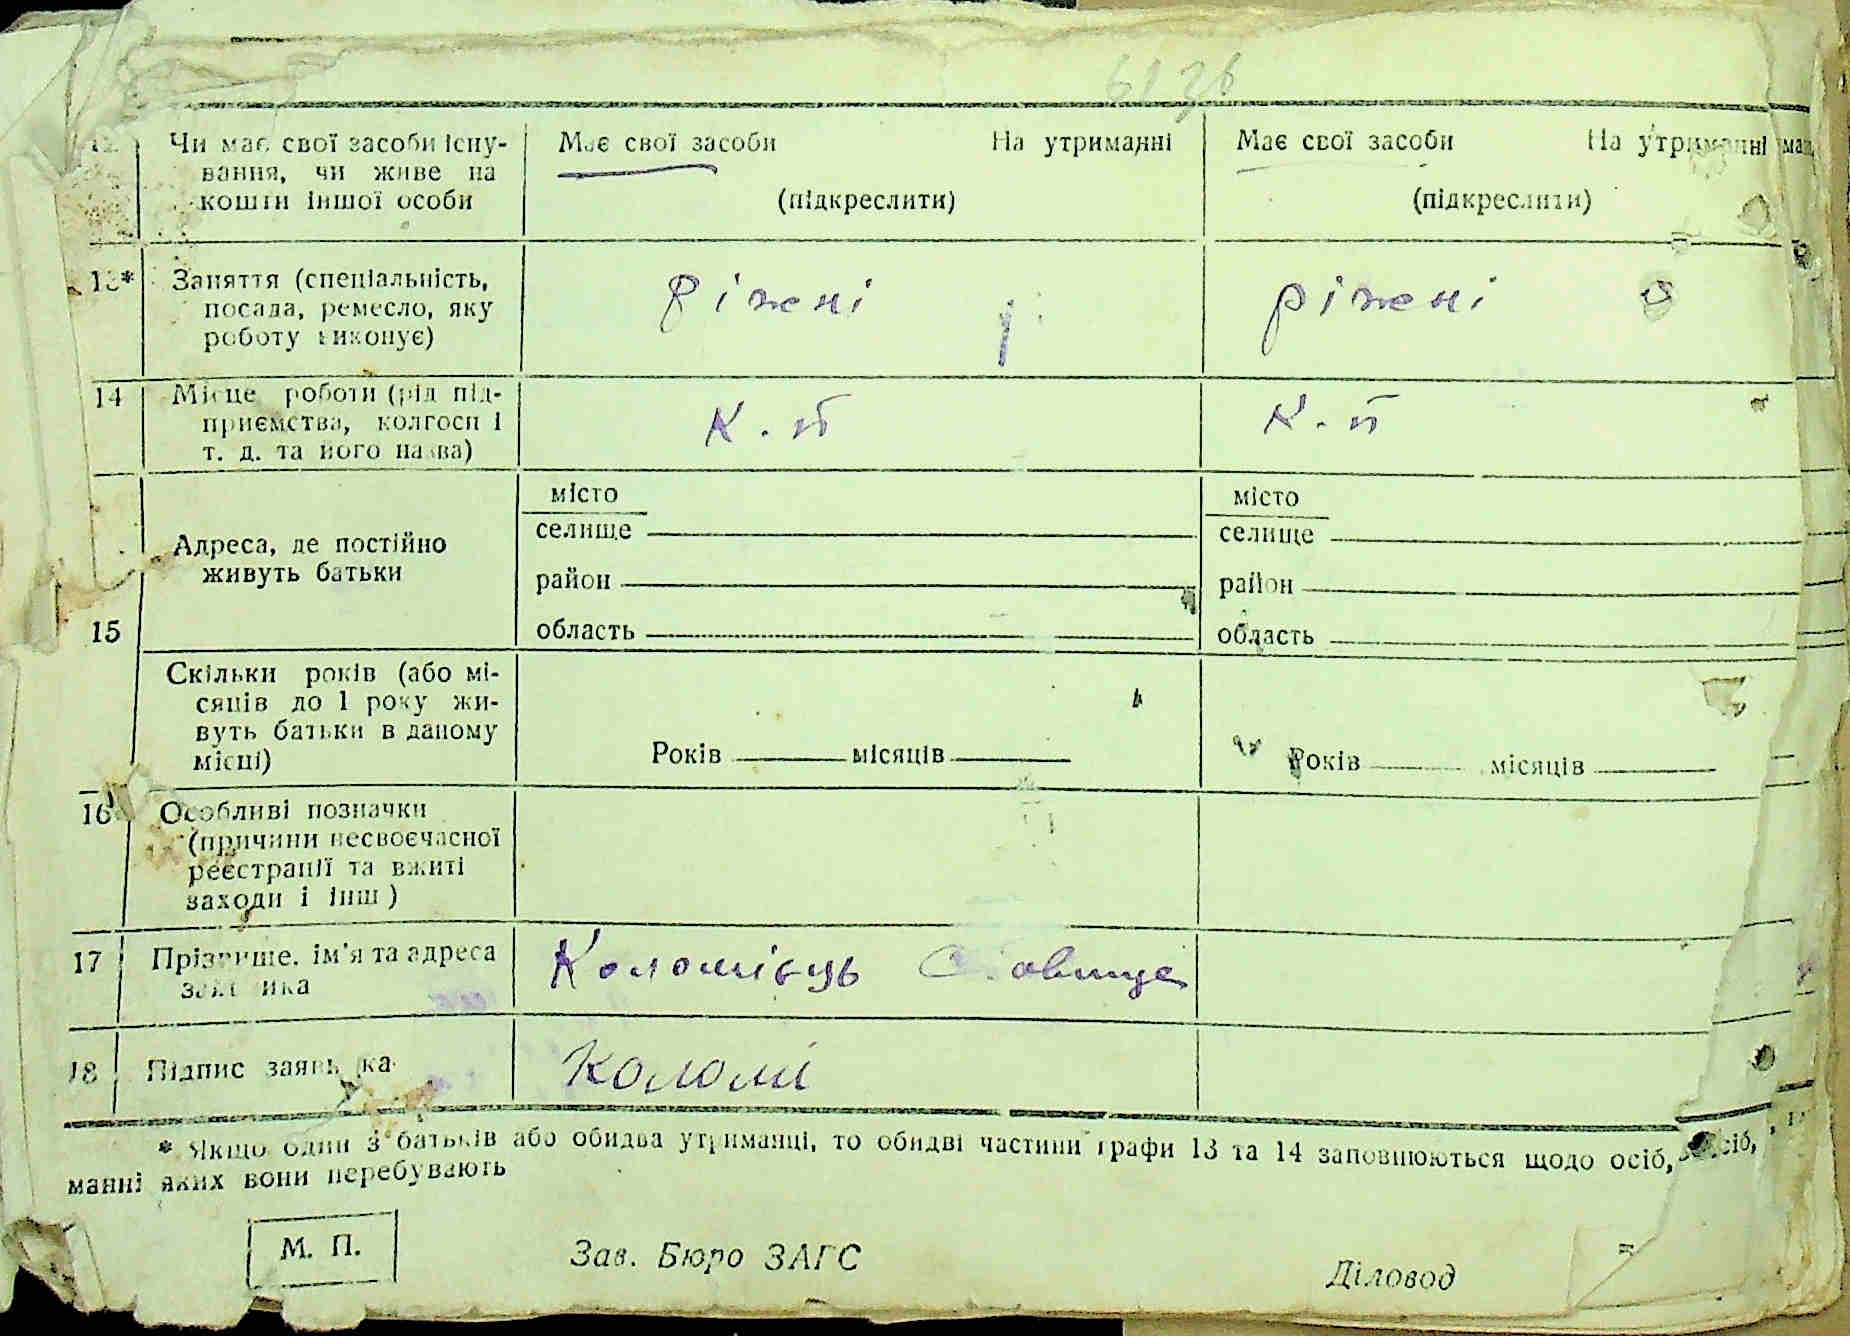 12 Чи має свої засоби існу- Має свої засоби На утриманні Має свої засоби На утриманні
вання, чи живе на
кошти іншої особи (підкреслити) (підкреслити)
13* Заняття (спеціальність,
посада, ремесло, яку ріжні ріжні
роботу виконує)
14 Місце роботи (рід під-
приємства, колгосп і К. п К. п
т. д. та його назва)
місто місто
селище селище
Адреса, де постійно
живуть батьки район район
15 область область
Скільки років (або мі-
сяців до 1 року жи-
вуть батьки в даному
місці) Років місяців Років місяців
16 Особливі позначки
(причини несвоєчасної
реєстрації та вжиті
заходи і інш)
17 Прізвище, ім'я та адреса Коломієць
заявника
18 Підпис заявника Коломі
* Якщо один з батьків або обидва утриманці, то обидві частини графи 13 та 14 заповнюються щодо осіб,
манні яких вони перебувають
М. П. Зав. Бюро ЗАГС Діловод